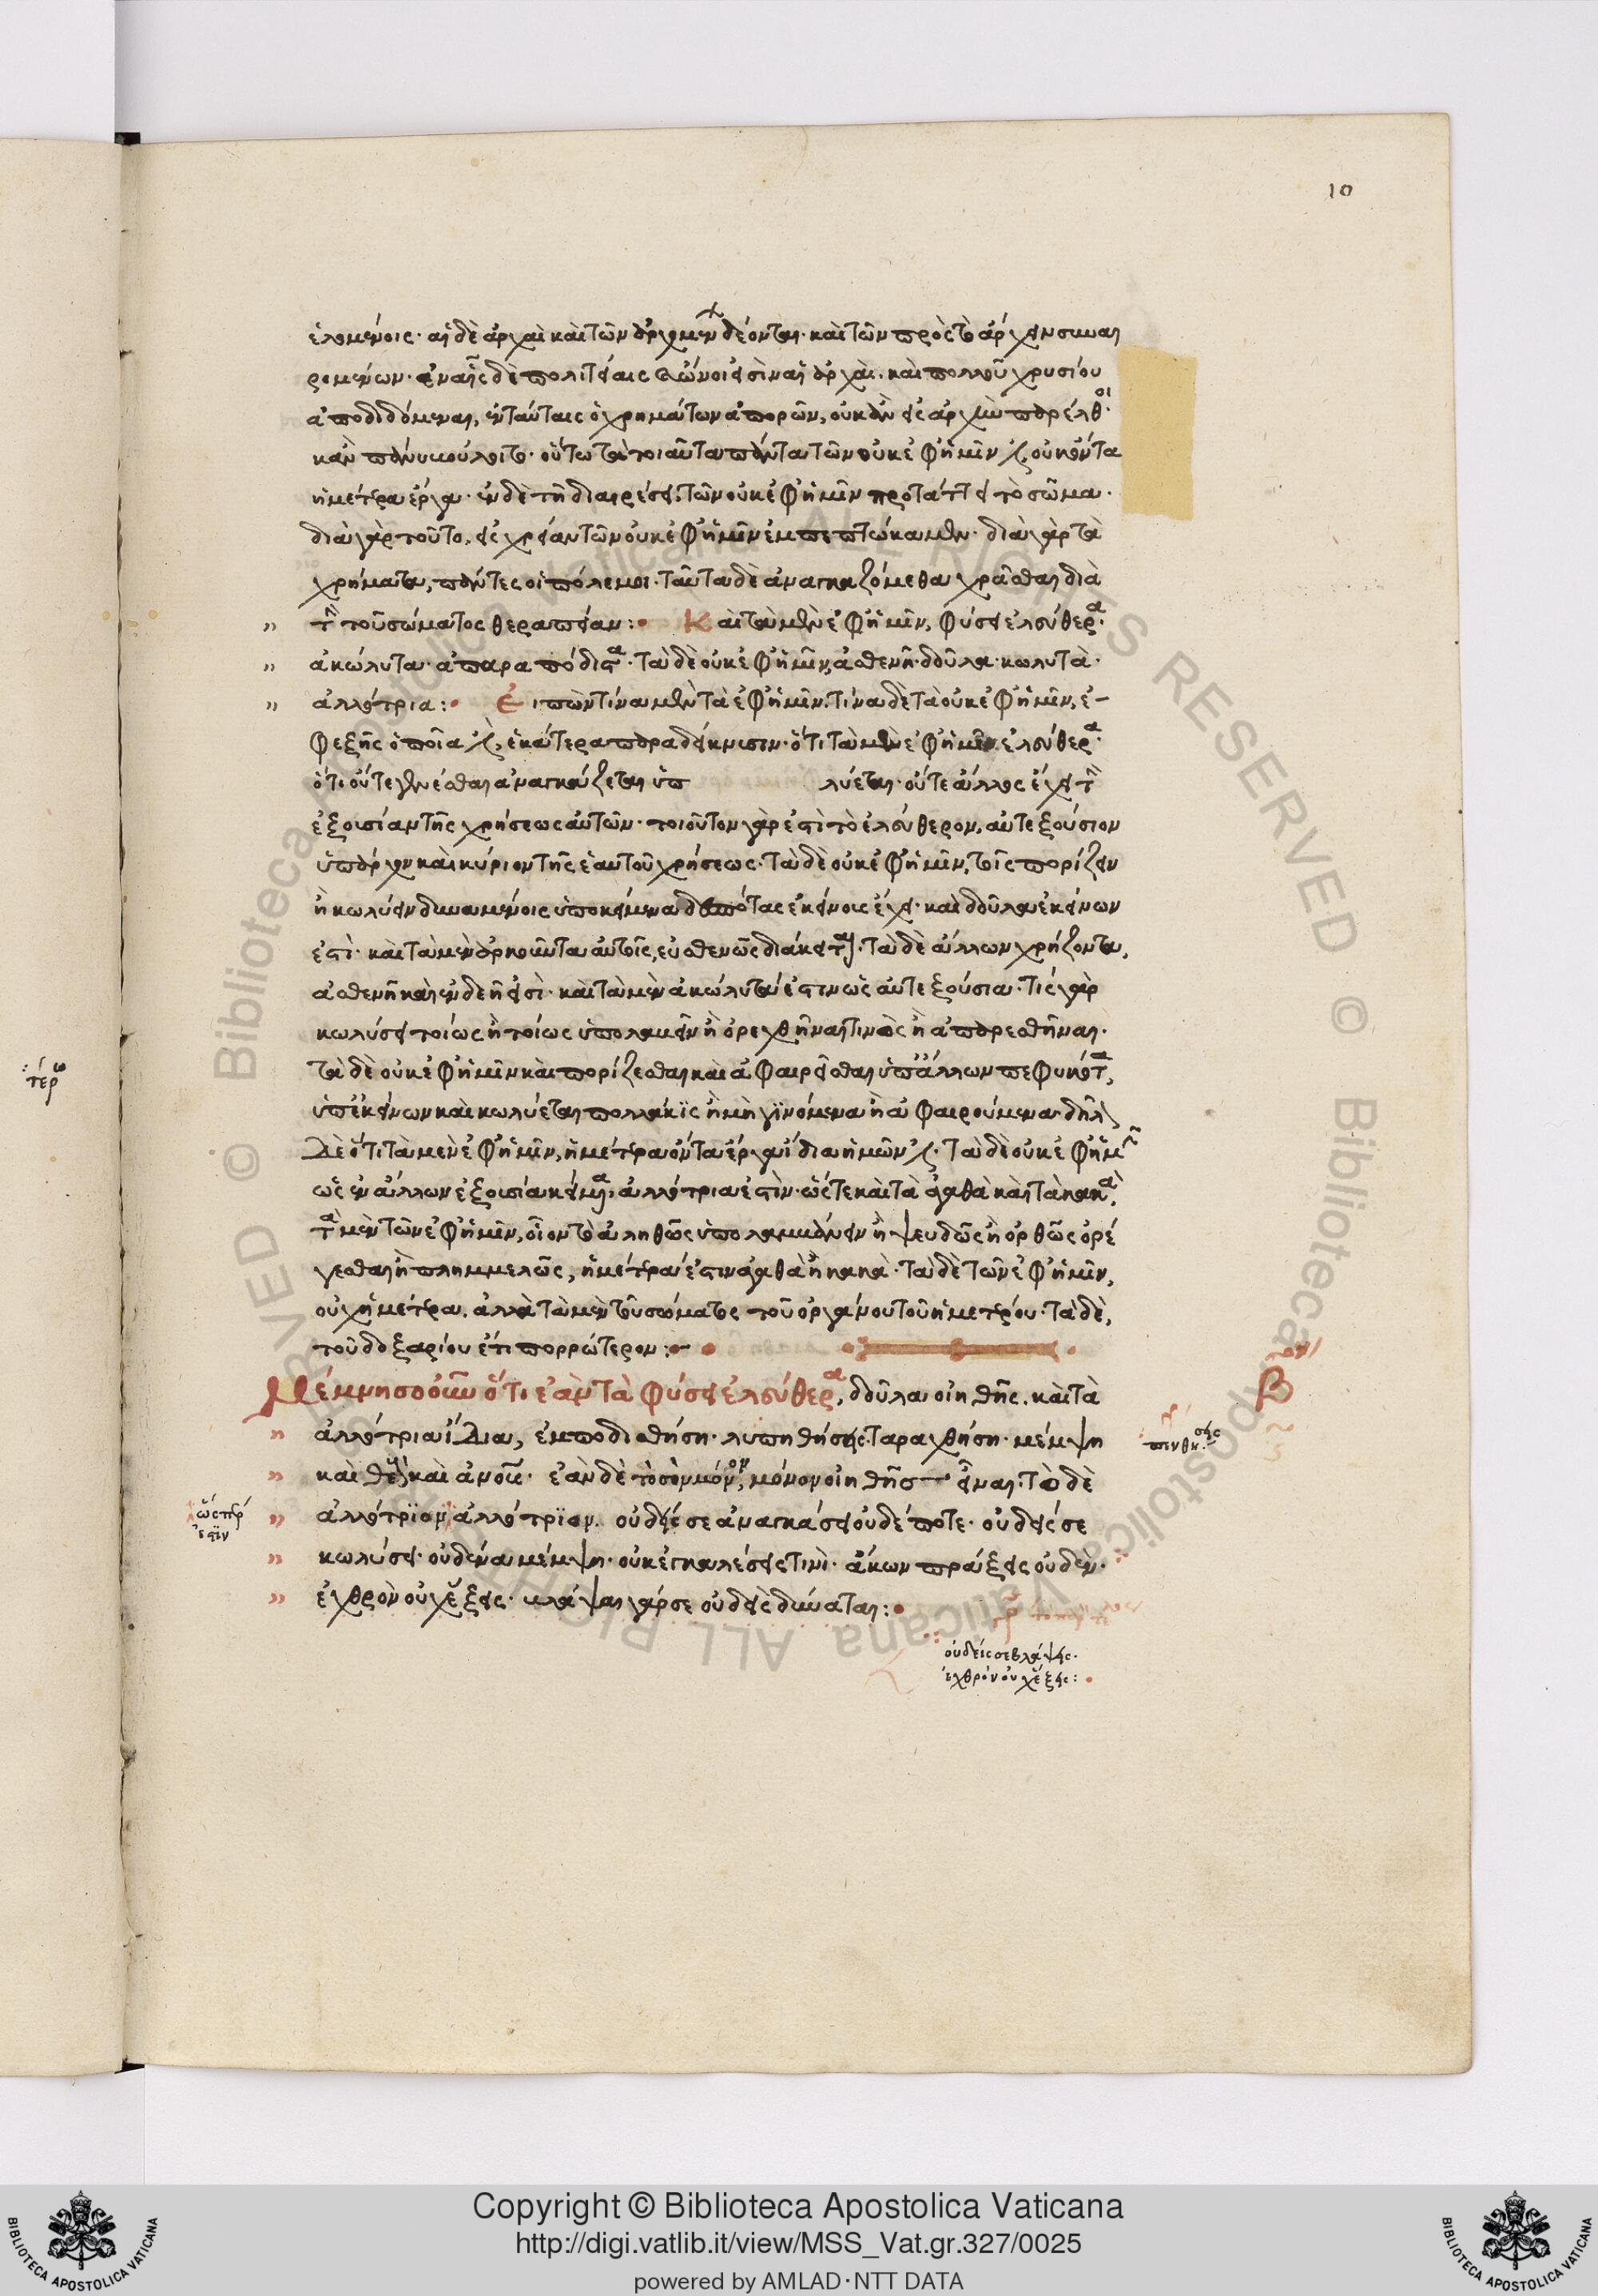 10
ἑλομένοις· αἱ δὲ ἀρχαὶ καὶ τῶν ἀρχομένων δέονται· καὶ τῶν πρὸς τὸ ἄρχειν συναι
ρομένων· ἐν αἷς δὲ πολιτείαις ὤνιοι εἰσὶν αἱ ἀρχαί. καὶ πολλοῦ χρυσίου
ἀποδιδόμεναι, ἐν ταύταις ὁ χρημάτων ἀπορῶν, οὐκ ἂν εἰς ἀρχὴν παρέλθοι·
κἂν πάνυ βούλοιτο· οὕτω τὰ τοιαῦτα πάντα τῶν οὐκ ἐφ' ἡμῖν ἐστὶ, οὐκ ὄντα
ἡμέτερα ἔργα· ἐν δὲ τῇ διαιρέσει τῶν οὐκ ἐφ' ἡμῖν προτάττει τὸ σῶμα·
διὰ γὰρ τοῦτο, εἰς χρείαν τῶν οὐκ ἐφ' ἡμῖν ἐμπεπτώκαμεν· διὰ γὰρ τὰ
χρήματα, πάντες οἱ πόλεμοι· ταῦτα δὲ ἀναγκαζόμεθα χρᾶσθαι διὰ
τὴν τοῦ σώματος θεραπείαν: Καὶ τὰ μὲν ἐφ' ἡμῖν, φύσει ἐλεύθερα·
ἀκώλυτα· ἀπαραπόδιστα· τὰ δὲ οὐκ ἐφ' ἡμῖν, ἀσθενῆ· δοῦλα· κωλυτὰ·
ἀλλότρια: Εἰπὼν τίνα μὲν τὰ ἐφ' ἡμῖν· τίνα δὲ τὰ οὐκ ἐφ' ἡμῖν, ἐ-
φεξῆς ὁποῖα ἐστὶν, ἑκάτερα παραδείκνυσιν· ὅτι τὰ μὲν ἐφ' ἡμῖν ἐλεύθερα·
ὅτι οὔτε γενέσθαι ἀναγκάζεται ὑπ λύεται· οὔτε ἄλλος ἔχει τὴν
ἐξουσίαν τῆς χρήσεως αὐτῶν· τοιοῦτον γάρ ἐστι τὸ ἐλεύθερον, αὐτεξούσιον
ὑπάρχον καὶ κύριον τῆς ἑαυτοῦ χρήσεως· τὰ δὲ οὐκ ἐφ' ἡμῖν, τοῖς πορίζειν
ἢ κωλύειν δυναμένοις ὑποκείμενα δεσπότας ἐκείνοις ἔχει· καὶ δοῦλα ἐκείνων
ἐστί· καὶ τὰ μὲν ἀρκοῦντα αὑτοῖς, εὐσθενῶς διάκειται· τὰ δὲ ἄλλων χρήζοντα,
ἀσθενῆ καὶ ἐνδεῆ εἰσί· καὶ τὰ μὲν ἀκώλυτά ἐστιν ὡς αὐτεξούσια· τίς γὰρ
κωλύσει τοίως ἢ τοίως ὑπολαβεῖν ἢ ὀρεχθῆναι τινὸς ἢ ἀπαρεσθῆναι·
τὰ δὲ οὐκ ἐφ' ἡμῖν καὶ πορίζεσθαι καὶ ἀφαιρεῖσθαι ὑπ' ἄλλων πεφυκότα,
ὑπ' ἐκείνων καὶ κωλύεται πολλάκις ἢ μὴ γινόμενα ἢ ἀφαιρούμενα· δῆλον
δὲ ὅτι τὰ μὲν ἐφ' ἡμῖν, ἡμέτερα ὄντα ἔργα ἴδια ἡμῶν ἐστὶ· τὰ δὲ οὐκ ἐφ' ἡμῖν
ὡς ἐν ἄλλων ἐξουσία κείμενα, ἀλλότρια ἐστίν· ὥστε καὶ τὰ ἀγαθὰ καὶ τὰ κακὰ,
τὰ μὲν τῶν ἐφ' ἡμῖν, οἷον τὸ ἀληθῶς ὑπολαμβάνειν ἢ ψευδῶς ἢ ὀρθῶς ὀρέ
γεσθαι ἢ πλημμελῶς, ἡμέτερά ἐστιν ἀγαθὰ ἢ κακὰ· τὰ δὲ τῶν ἐφ' ἡμῖν,
οὐχ ἡμέτερα. ἀλλὰ τὰ μὲν τοῦ σώματος τοῦ ὀργάνου τοῦ ἡμετέρου· τὰ δὲ,
τοῦ δοξαρίου ἔτι πορρώτερον:
Μέμνησο οὖν ὅτι ἐὰν τὰ φύσει ἐλεύθερα, δοῦλα οἰηθῇς. καὶ τὰ
ἀλλότρια ἴδια, ἐμποδισθήσῃ· λυπηθήσῃς· ταραχθήσῃ· μέμψῃ
καὶ θεοὺς καὶ ἀνους· ἐὰν δὲ τὸ σὸν μόνον, μόνον οἰηθῇς σὸν εἶναι· τὸ δὲ
ἀλλότριον ἀλλότριον. οὐδείς σε ἀναγκάσει οὐδέποτε· οὐδείς σε
κωλύσει· οὐδένα μέμψῃ· οὐκ ἐγκαλέσεις τινί· ἄκων πράξεις οὐδέν·
ἐχθρὸν οὐχ ἕξεις· βλάψαι γάρ σε οὐδεὶς δύναται:
β
πενθήσεις
ὥσπερ
ἐστιν
οὐδείς σε βλάψει·
ἐχθρὸν οὐχ ἕξεις:
Copyright © Biblioteca Apostolica Vaticana
http://digi.vatlib.it/view/MSS_Vat.gr.327/0025
powered by AMLAD·NTT DATA
BIBLIOTECA APOSTOLICA VATICANA
BIBLIOTECA APOSTOLICA VATICANA
© Biblioteca Apostolica Vaticana ALL RIGHTS RESERVED © Biblioteca Apostolica Vaticana ALL RIGHTS RESERVED